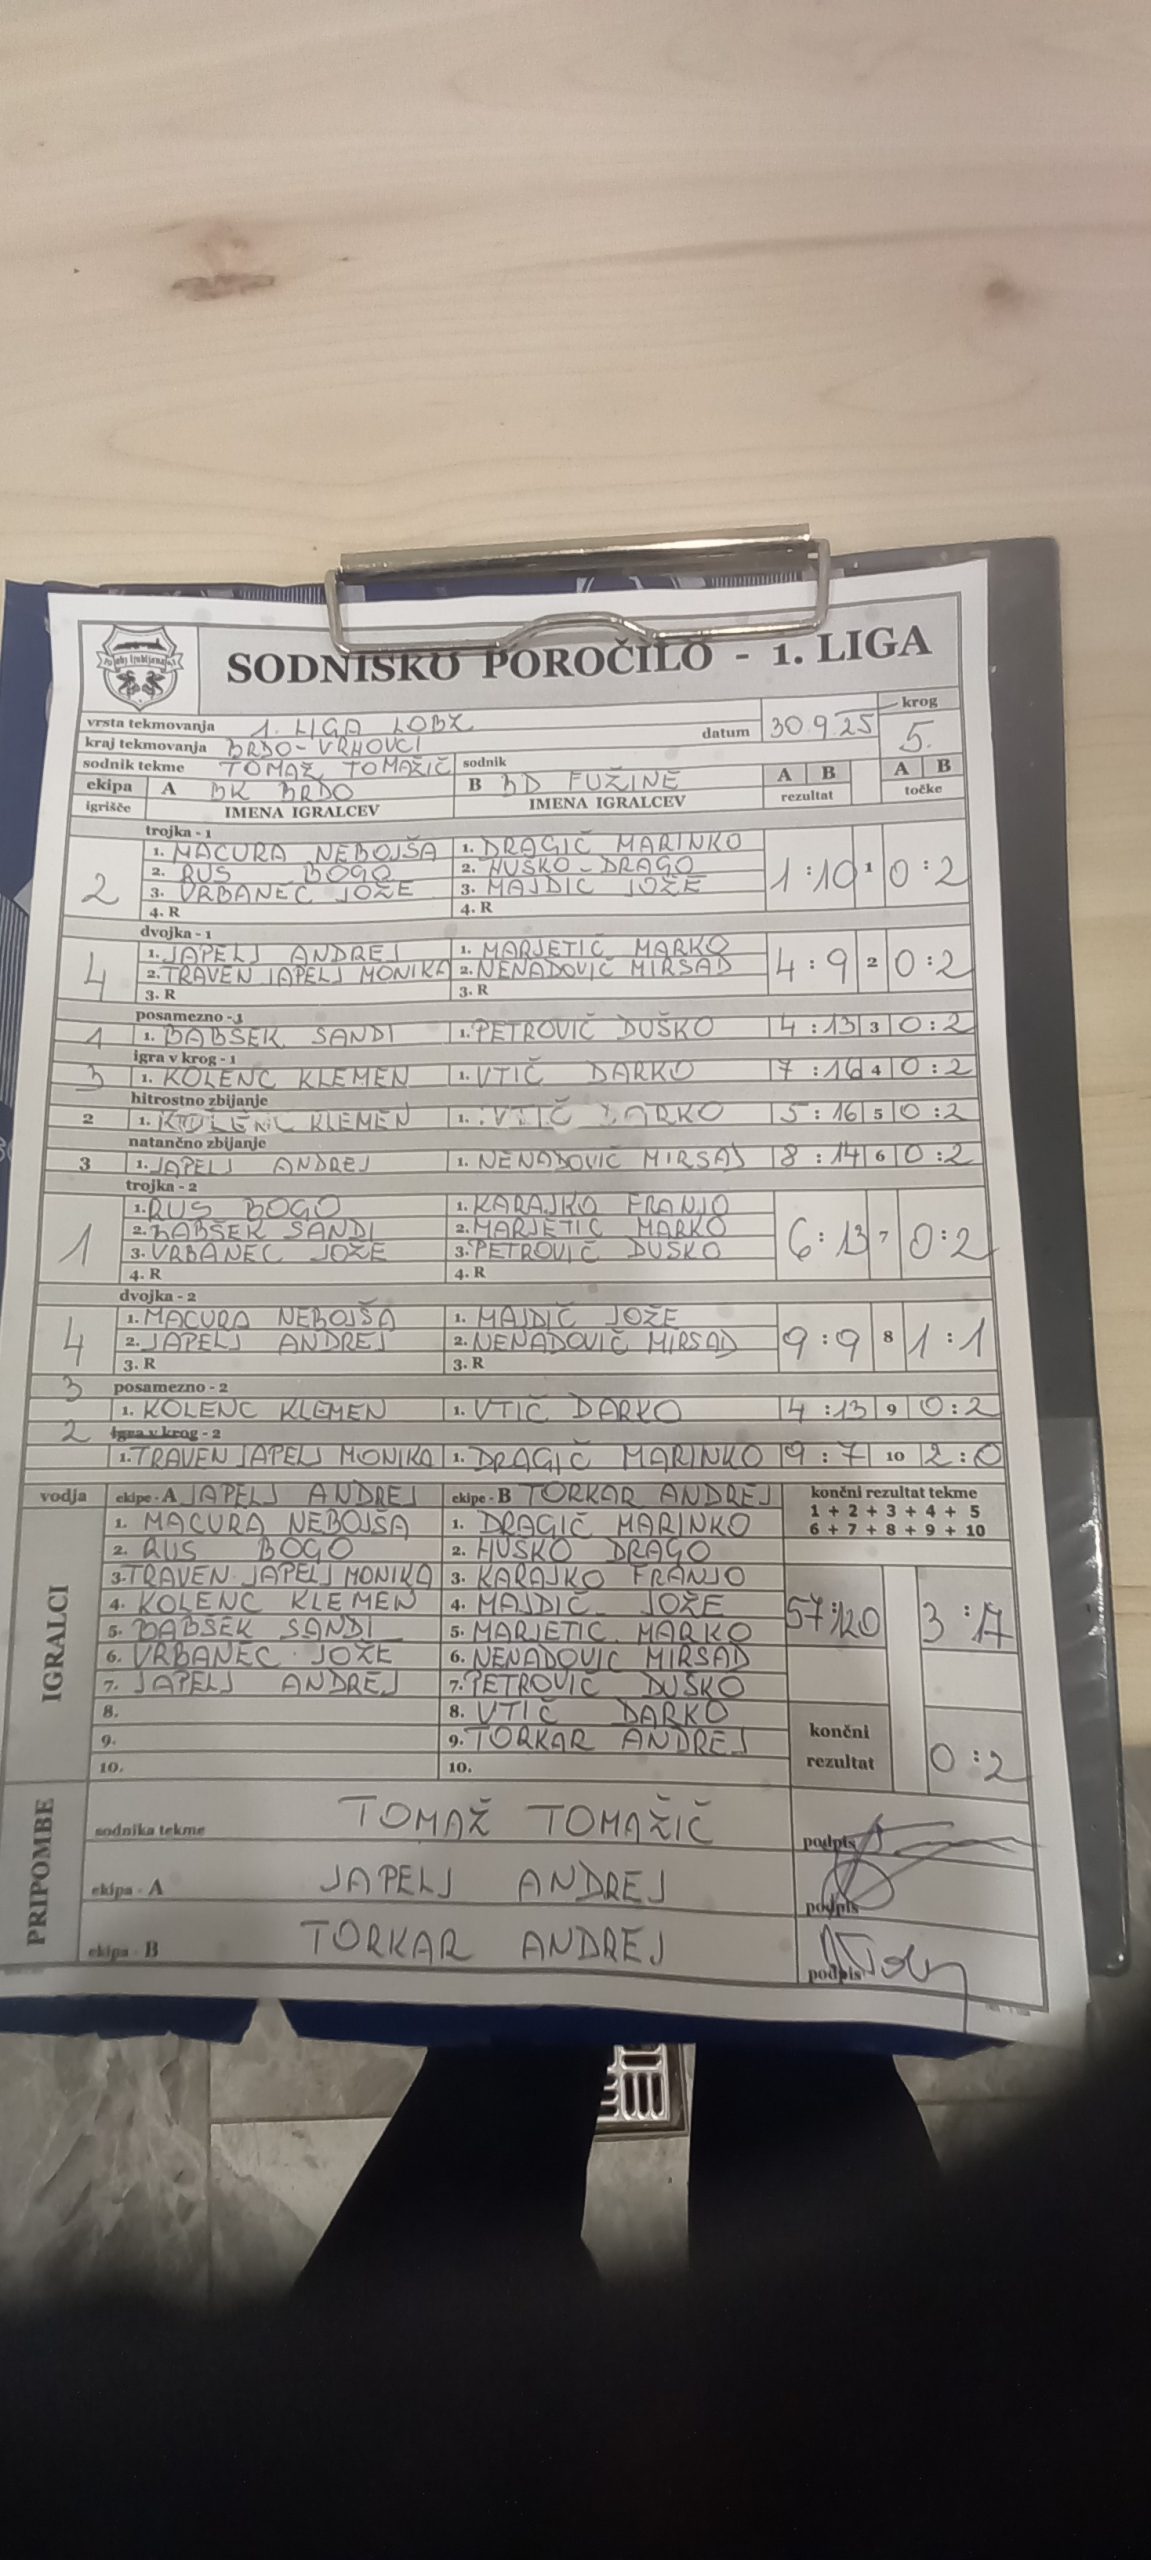 SODNISKO POROČILO - 1. LIGA
vrsta tekmovanja 1. LIGA LOBZ datum 30.9.25 krog 5.
kraj tekmovanja BRDO-VRHOVCI
sodnik tekme TOMAŽ TOMAŽIČ sodnik
ekipa A BK BRDO B BD FUŽINE A B A B
igrišče IMENA IGRALCEV IMENA IGRALCEV rezultat točke
trojka - 1
2 1. MACURA NEBOJŠA 1. DRAGIČ MARINKO 1:10 1 0:2
2. RUS BOGO 2. HUŠKO DRAGO
3. VRBANEC JOŽE 3. MAJDIČ JOŽE
4. R 4. R
dvojka - 1
4 1. JAPELJ ANDREJ 1. MARJETIČ MARKO 4:9 2 0:2
2. TRAVEN JAPELJ MONIKA 2. NENADOVIČ MIRSAD
3. R 3. R
posamezno - 1
1 1. BABŠEK SANDI 1. PETROVIČ DUŠKO 4:13 3 0:2
igra v krog - 1
3 1. KOLENC KLEMEN 1. VTIČ DARKO 7:16 4 0:2
hitrostno zbijanje
2 1. KOLENC KLEMEN 1. VTIČ DARKO 5:16 5 0:2
natančno zbijanje
3 1. JAPELJ ANDREJ 1. NENADOVIČ MIRSAD 8:14 6 0:2
trojka - 2
1 1. RUS BOGO 1. KARAJKO FRANJO 6:13 7 0:2
2. BABŠEK SANDI 2. MARJETIČ MARKO
3. VRBANEC JOŽE 3. PETROVIČ DUŠKO
4. R 4. R
dvojka - 2
4 1. MACURA NEBOJŠA 1. MAJDIČ JOŽE 9:9 8 1:1
2. JAPELJ ANDREJ 2. NENADOVIČ MIRSAD
3. R 3. R
3 posamezno - 2
1. KOLENC KLEMEN 1. VTIČ DARKO 4:13 9 0:2
2 igra v krog - 2
1. TRAVEN JAPELJ MONIKA 1. DRAGIČ MARINKO 9:7 10 2:0
vodja ekipe - A JAPELJ ANDREJ ekipe - B TORKAR ANDREJ končni rezultat tekme
1 + 2 + 3 + 4 + 5
6 + 7 + 8 + 9 + 10
IGRALCI
1. MACURA NEBOJŠA 1. DRAGIČ MARINKO
2. RUS BOGO 2. HUŠKO DRAGO
3. TRAVEN JAPELJ MONIKA 3. KARAJKO FRANJO
4. KOLENC KLEMEN 4. MAJDIČ JOŽE 57:120 3:17
5. BABŠEK SANDI 5. MARJETIČ MARKO
6. VRBANEC JOŽE 6. NENADOVIČ MIRSAD
7. JAPELJ ANDREJ 7. PETROVIČ DUŠKO
8. 8. VTIČ DARKO
9. 9. TORKAR ANDREJ
10. 10.
končni rezultat 0:2
PRIPOMBE
sodnika tekme TOMAŽ TOMAŽIČ podpis
ekipa - A JAPELJ ANDREJ podpis
ekipa - B TORKAR ANDREJ podpis